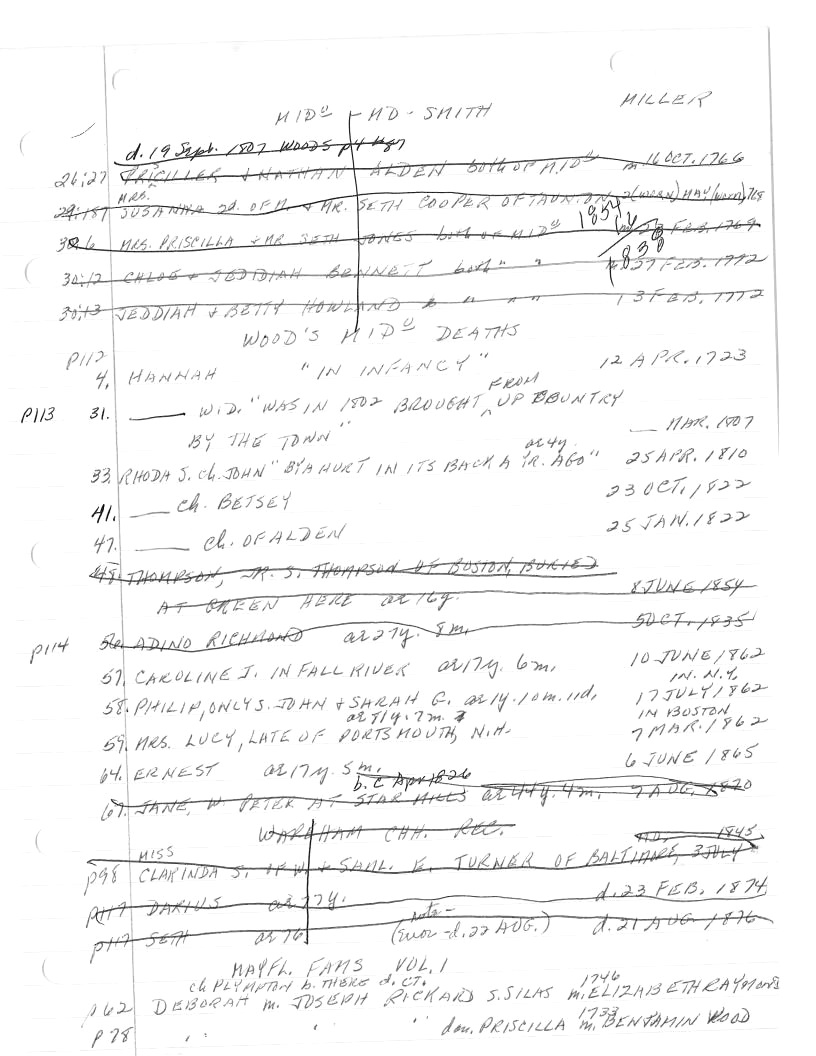 MIDᵒ MD - SMITH MILLER
d. 19 Sept. 1807 WOODS p4
26:27 PRISCILLER & NATHAN ALDEN both OF MIDᵒ m 16 OCT. 1766
MRS.
29:187 SUSANNA 2d. OF M. & MR. SETH COOPER OF TAUNTON 2(WORN) MAY (worn) 768
1854
30:6 MRS. PRISCILLA & MR SETH JONES both OF MIDᵒ FEB. 1769
1838
30:12 CHLOE & JEDIDIAH BENNETT both " " m. 27 FEB. 1772
30:13 JEDDIAH & BETTY HOWLAND " " " 13 FEB. 1772
WOOD'S MIDᵒ DEATHS
P112
4. HANNAH "IN INFANCY" 12 APR. 1723
FROM
P113 31. ___ W.D. "WAS IN 1802 BROUGHT ^ UP COUNTRY
BY THE TOWN" __ MAR. 1807
ae 4y.
33. RHODA S. Ch. JOHN "BY A HURT IN ITS BACK A YR. AGO" 25 APR. 1810
41. ___ Ch. BETSEY 23 OCT. 1822
47. ___ Ch. OF ALDEN 25 JAN. 1822
48. THOMPSON, JR. S. THOMPSON OF BOSTON, BURIED
AT GREEN HERE ae 16y. 8 JUNE 1854
P114 56. ADINO RICHMOND ae 27y. 8m. 5 OCT. 1835
57. CAROLINE J. IN FALL RIVER ae 17y. 6m. 10 JUNE 1862
IN. N.Y.
58. PHILIP, ONLY S. JOHN & SARAH G. ae 1y. 10m. 11d. 17 JULY 1862
ae 51y. 7m. IN BOSTON
59. MRS. LUCY, LATE OF PORTSMOUTH, N.H. 7 MAR. 1862
64. ERNEST ae 17y. 5m. 6 JUNE 1865
b. C Apr 1826
67. JANE, W. PETER AT STAR MILLS ae 44y. 4m. 7 AUG. 1870
WAREHAM CHH. REC.
MISS 1845
p98 CLARINDA S. OF W. & SAML. E. TURNER OF BALTIMORE, 3 JULY
p117 DARIUS ae 77y. d. 23 FEB. 1874
note-
p117 SETH ae 76 (Error - d. 22 AUG.) d. 21 AUG 1876
MAYFL. FAMS VOL. 1
ch PLYMPTON b. THERE d. CT. 1746
p62 DEBORAH m. JOSEPH RICKARD S. SILAS m. ELIZABETH RAYMOND
1733
P78 " " " dau. PRISCILLA m. BENJAMIN WOOD